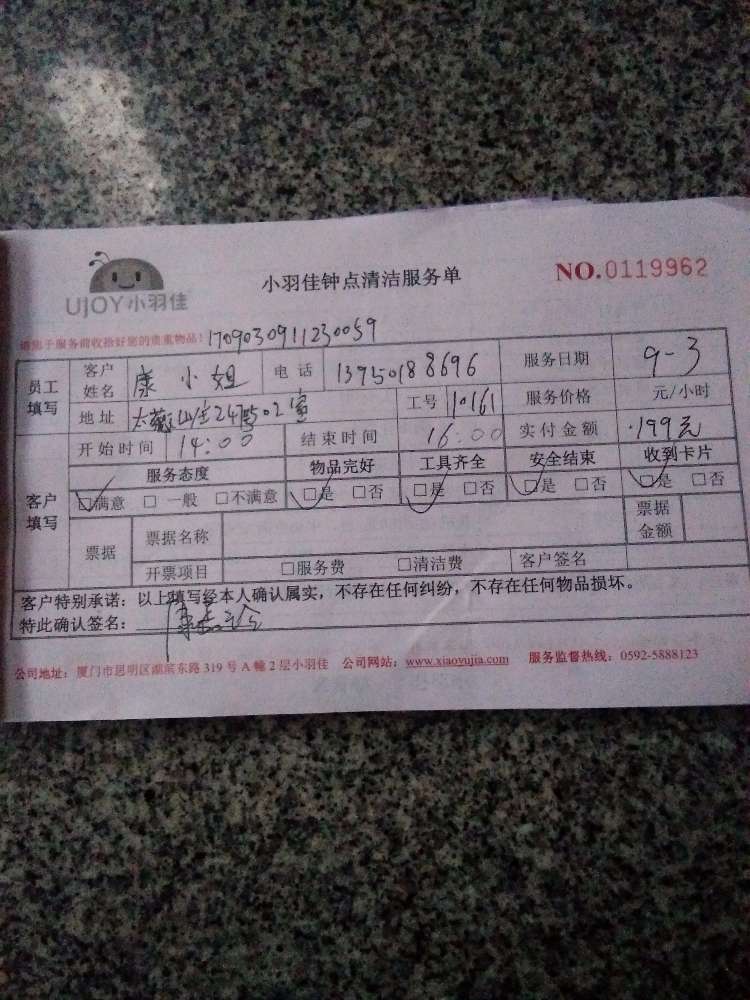 UJOY小羽佳
小羽佳钟点清洁服务单
NO.0119962
请您于服务前收拾好您的贵重物品! 1709030911230059
员工填写 客户姓名 康小姐 电话 13950188696 服务日期 9-3
地址 室 工号 10161 服务价格 元/小时
客户填写 开始时间 14:00 结束时间 16:00 实付金额 199元
服务态度 物品完好 工具齐全 安全结束 收到卡片
□满意 □一般 □不满意 □是 □否 □是 □否 □是 □否 □是 □否
票据 票据名称 票据金额
开票项目 □服务费 □清洁费 客户签名
客户特别承诺：以上填写经本人确认属实，不存在任何纠纷，不存在任何物品损坏。
特此确认签名：
公司地址：厦门市思明区湖滨东路 319 号 A 幢 2 层小羽佳 公司网站：www.xiaoyujia.com 服务监督热线：0592-5888123